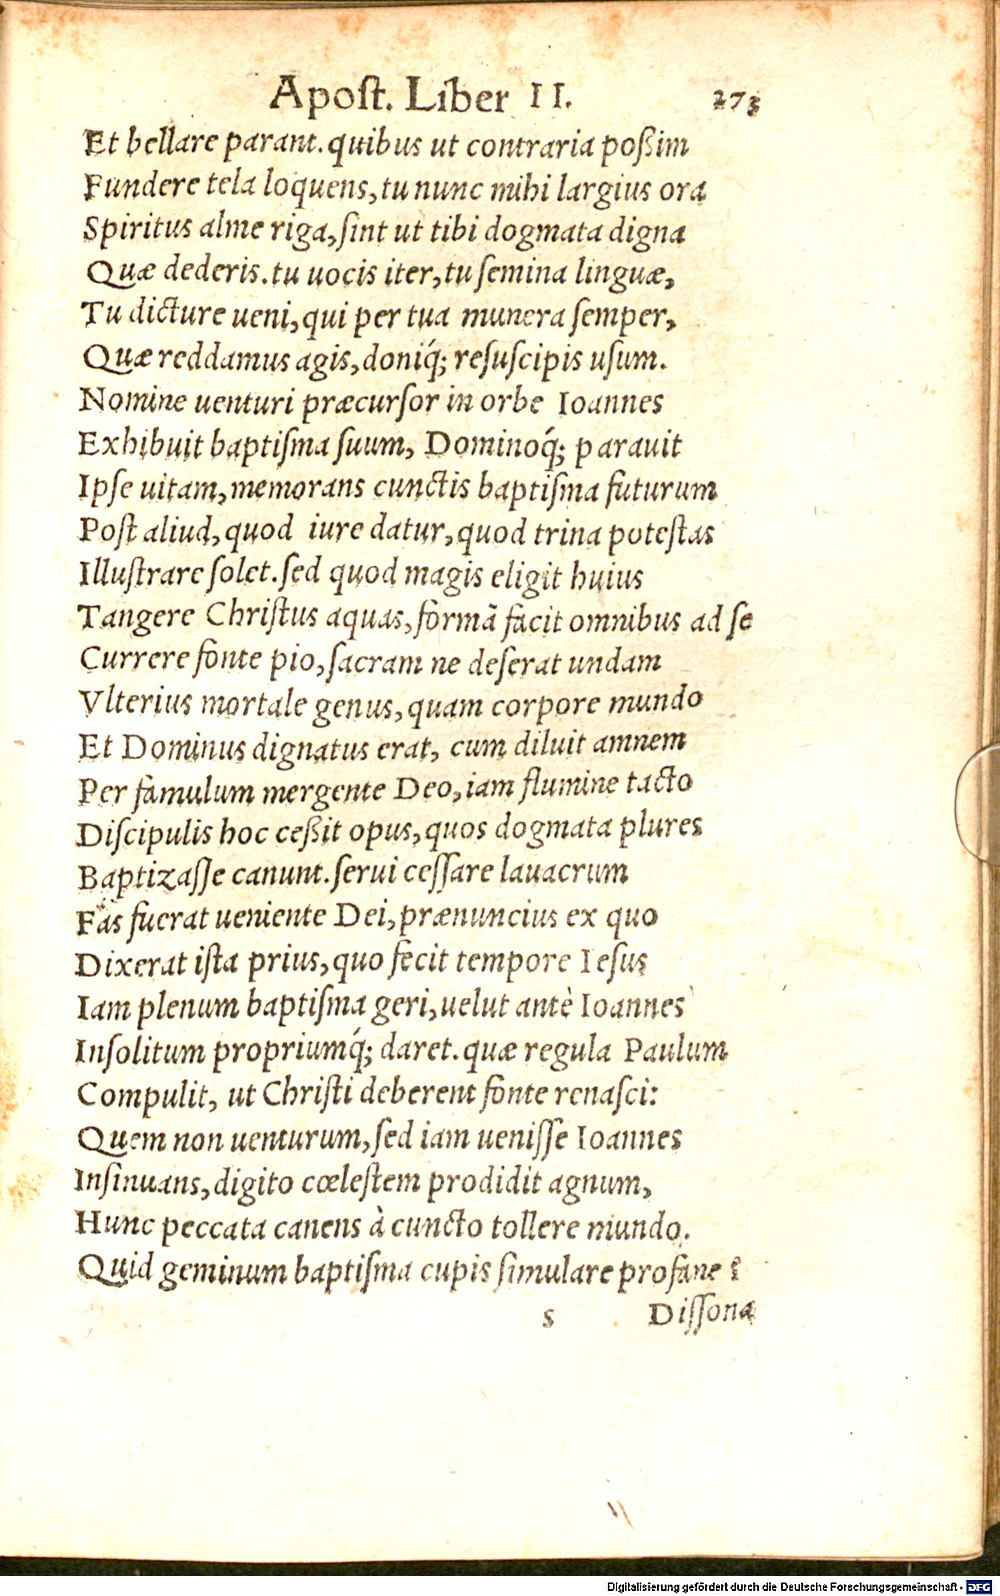 Apoſt. Liber II. 273
Et bellare parant. quibus ut contraria poßim
Fundere tela loquens, tu nunc mihi largius ora
Spiritus alme riga, ſint ut tibi dogmata digna
Quæ dederis. tu uocis iter, tu ſemina linguæ,
Tu dicture ueni, qui per tua munera ſemper,
Quæ reddamus agis, doniq́; reſuſcipis uſum.
Nomine uenturi præcurſor in orbe Ioannes
Exhibuit baptiſma ſuum, Dominoq́; parauit
Ipſe uitam, memorans cunctis baptiſma futurum
Poſt aliud, quod iure datur, quod trina poteſtas
Illuſtrare ſolet. ſed quod magis eligit huius
Tangere Chriſtus aquas, formã facit omnibus ad ſe
Currere fonte pio, ſacram ne deſerat undam
Vlterius mortale genus, quam corpore mundo
Et Dominus dignatus erat, cum diluit amnem
Per famulum mergente Deo, iam flumine tacto
Diſcipulis hoc ceßit opus, quos dogmata plures
Baptizaſſe canunt. ſerui ceſſare lauacrum
Fas fuerat ueniente Dei, prænuncius ex quo
Dixerat iſta prius, quo fecit tempore Ieſus
Iam plenum baptiſma geri, uelut antè Ioannes
Inſolitum propriumq́; daret. quæ regula Paulum
Compulit, ut Chriſti deberent fonte renaſci:
Quem non uenturum, ſed iam ueniſſe Ioannes
Inſinuans, digito cœleſtem prodidit agnum,
Hunc peccata canens à cuncto tollere mundo.
Quid geminum baptiſma cupis ſimulare profane?
s Diſſona
Digitalisierung gefördert durch die Deutsche Forschungsgemeinschaft - DFG